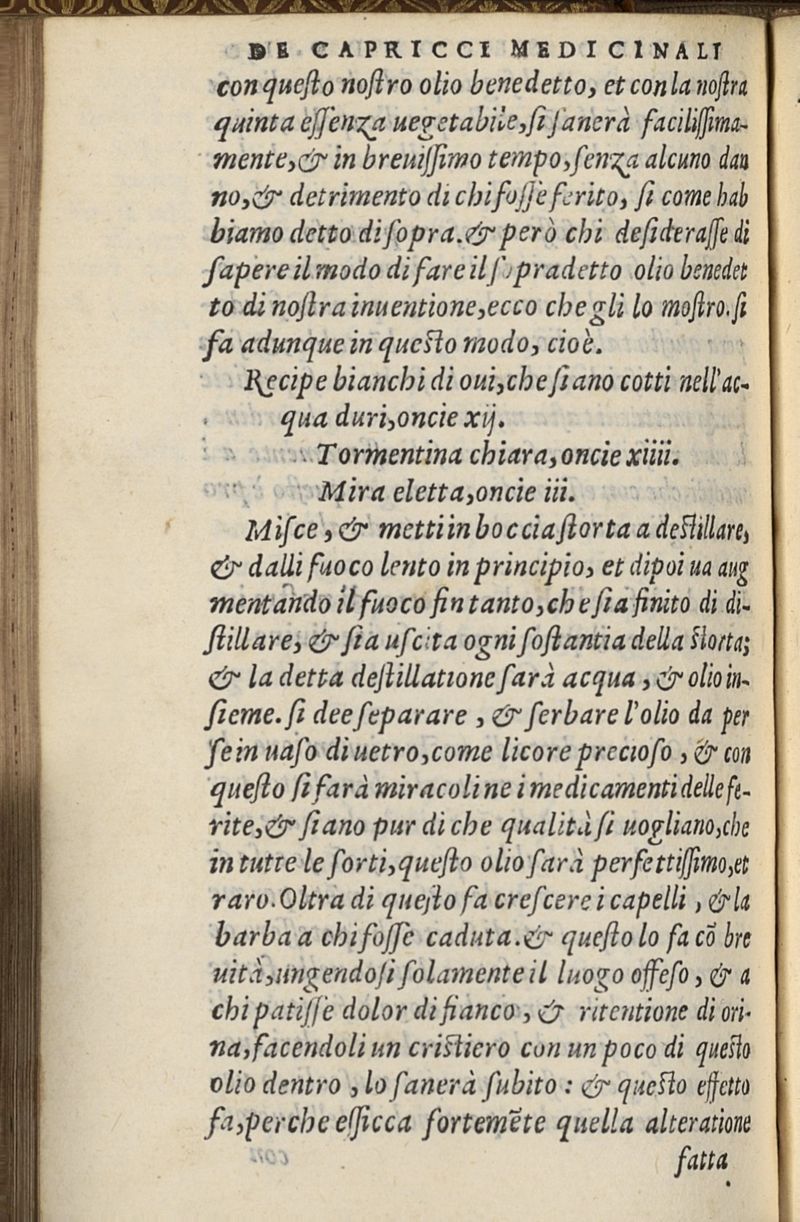 DE CAPRICCI MEDICINALI
con queſto noſtro olio benedetto, et con la noſtra
quinta eſſenza uegetabile, ſi ſanerà faciliſſima-
mente, & in breuiſſimo tempo, ſenza alcuno dan
no, & detrimento di chi foſſe ferito, ſi come hab
biamo detto di ſopra. & però chi deſideraſſe di
ſapere il modo di fare il ſopradetto olio benedet
to di noſtra inuentione, ecco che gli lo moſtro. ſi
fa adunque in queſto modo, cioè.
Recipe bianchi di oui, che ſiano cotti nell'ac-
qua duri, oncie xij.
Tormentina chiara, oncie xiiii.
Mira eletta, oncie iii.
Miſce, & metti in boccia ſtorta a deſtillare,
& dalli fuoco lento in principio, et dipoi ua aug
mentando il fuoco fin tanto, che ſia finito di di-
ſtillare, & ſia uſcita ogni ſoſtantia della ſtorta;
& la detta deſtillatione ſarà acqua, & olio in-
ſieme. ſi dee ſeparare, & ſerbare l'olio da per
ſe in uaſo di uetro, come licore precioſo, & con
queſto ſi farà miracoli ne i medicamenti delle fe-
rite, & ſiano pur di che qualità ſi uogliano, che
in tutte le ſorti, queſto olio ſarà perfettiſſimo, et
raro. Oltra di queſto fa creſcere i capelli, & la
barba a chi foſſe caduta. & queſto lo fa cõ bre
uità, ungendoſi ſolamente il luogo offeſo, & a
chi patiſſe dolor di fianco, & ritentione di ori-
na, facendoli un criſtiero con un poco di queſto
olio dentro, lo ſanerà ſubito: & queſto effetto
fa, perche eſſicca fortemẽte quella alteratione
fatta